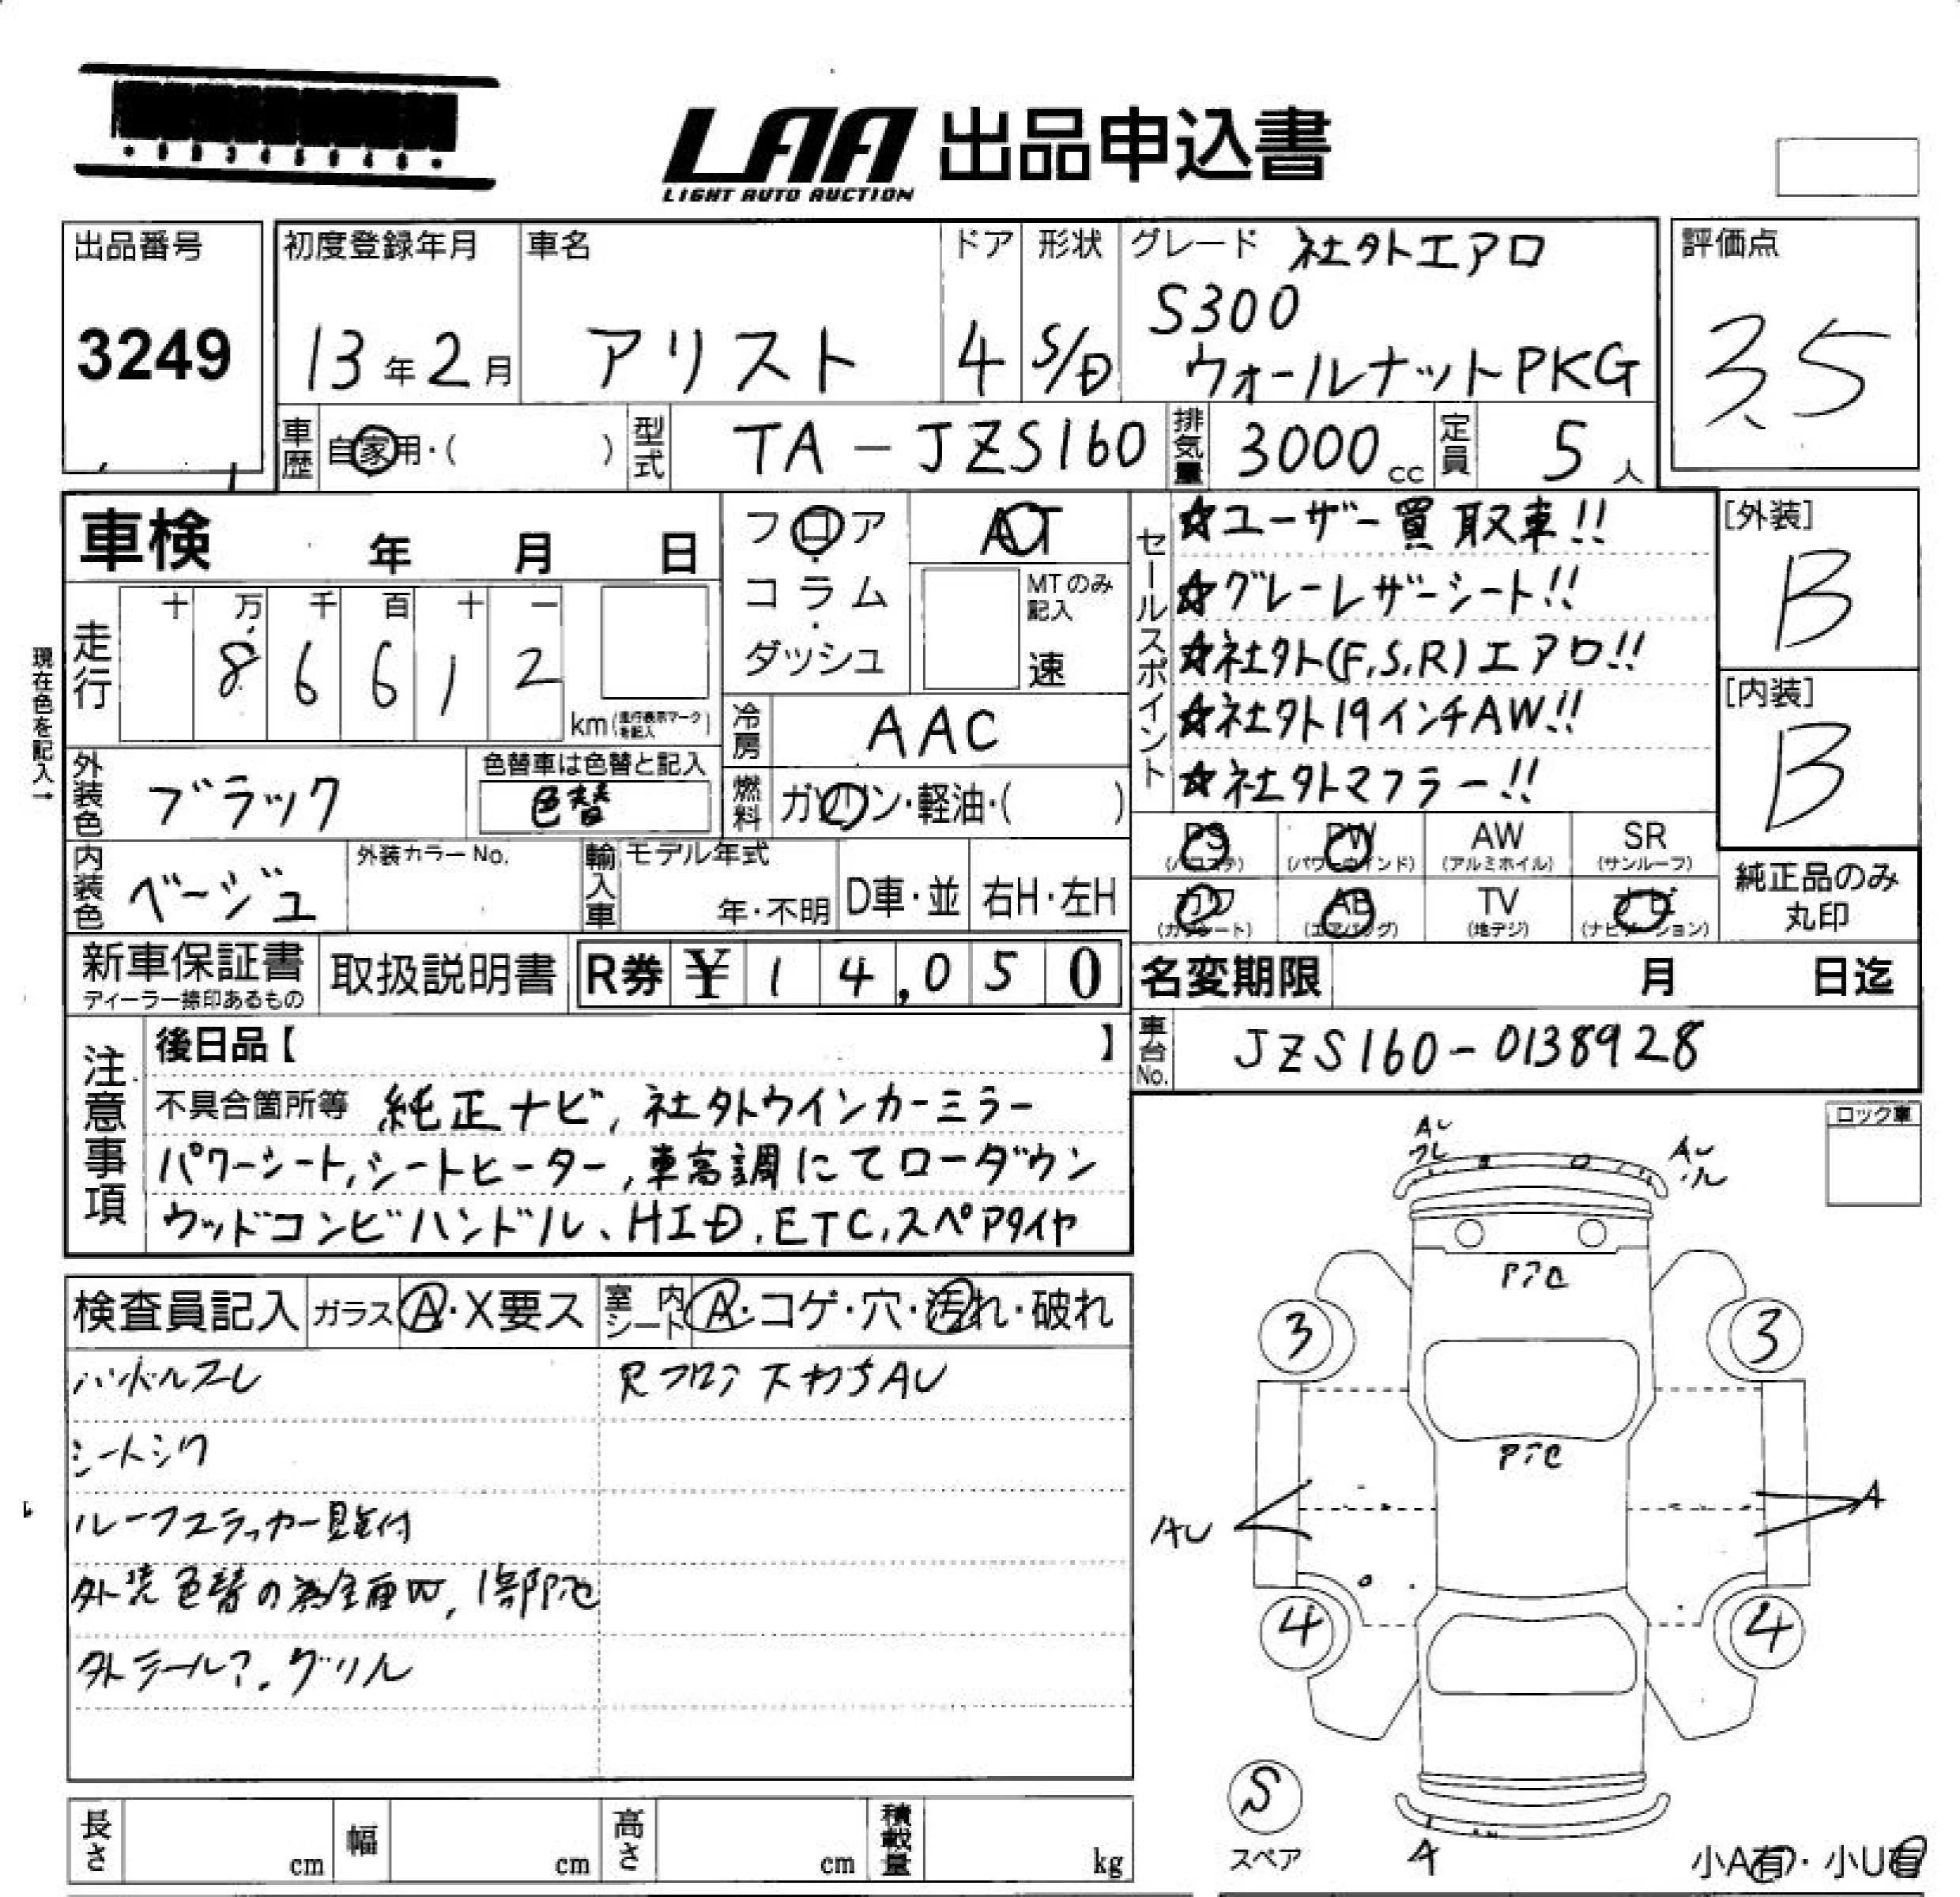 LAA 出品申込書
LIGHT AUTO AUCTION
出品番号
3249
初度登録年月
13年2月
車名
アリスト
ドア
4
形状
S/D
グレード 社外エアロ
S300
ウォールナットPKG
評価点
3.5
車歴 自家用・( )
型式 TA-JZS160
排気量 3000cc
定員 5人
車検 年 月 日
走行
十 万 千 百 十 一
8 6 6 1 2
km(走行表示マークを記入)
現在色を記入→
フロア・
コラム・
ダッシュ
AT
MTのみ記入
速
冷房 AAC
燃料 ガソリン・軽油・( )
外装色 ブラック
色替車は色替と記入
色替
内装色 ベージュ
外装カラーNo.
輸入車
モデル年式
年・不明
D車・並
右H・左H
セールスポイント
☆ユーザー買取車!!
☆グレーレザーシート!!
☆社外(F,S,R)エアロ!!
☆社外19インチAW!!
☆社外マフラー!!
[外装]
B
[内装]
B
PS (パワステ)
PW (パワーウインド)
AW (アルミホイル)
SR (サンルーフ)
カワ (カワシート)
AB (エアバッグ)
TV (地デジ)
ナビ (ナビゲーション)
純正品のみ
丸印
新車保証書
ディーラー捺印あるもの
取扱説明書
R券 ¥ 14,050
名変期限 月 日迄
車台No. JZS160-0138928
注意事項
後日品【 】
不具合箇所等 純正ナビ,社外ウインカーミラー
パワーシート,シートヒーター,車高調にてローダウン
ウッドコンビハンドル、HID,ETC,スペアタイヤ
ロック車
AU
AU
3
3
AU
A
4
4
S
スペア
A
小A有・小U有
検査員記入
ガラス A・X要ス
室内シート A・コゲ・穴・汚れ・破れ
ハンドルスレ
シートシワ
ルーフステッカー貼付
外装色替の為全面W,1部防
グリル
長さ cm
幅 cm
高さ cm
積載量 kg